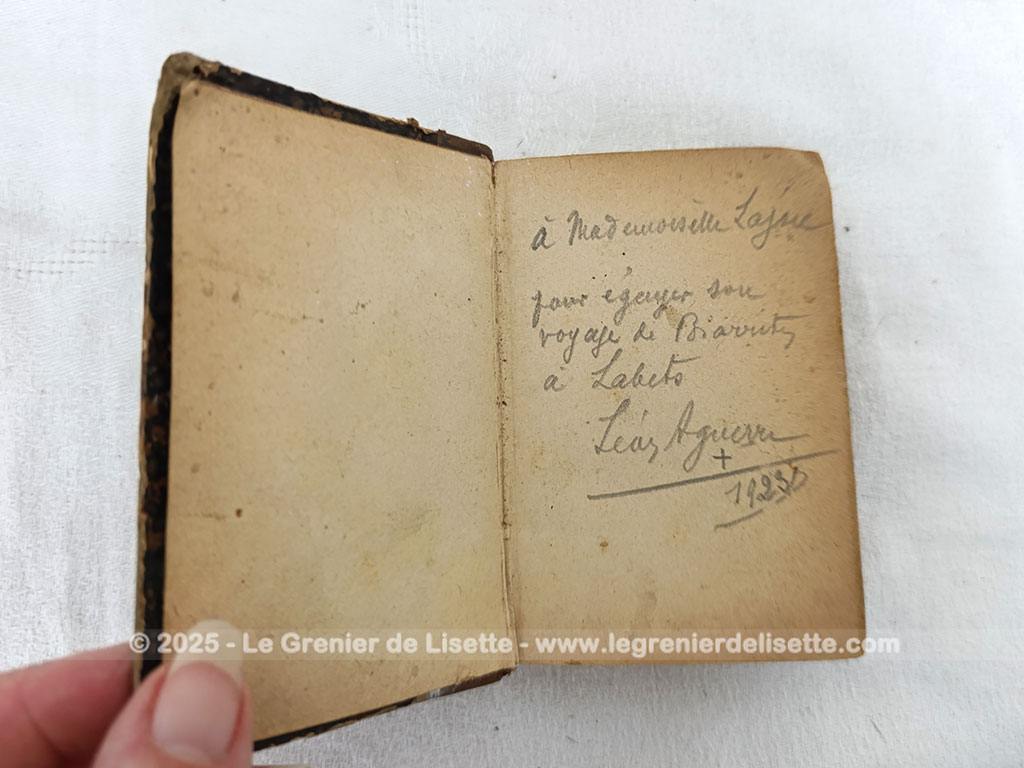 à Mademoiselle
pour égayer son
voyage de Biarritz
à Labets
Aguerre
+
© 2025 - Le Grenier de Lisette - www.legrenierdelisette.com